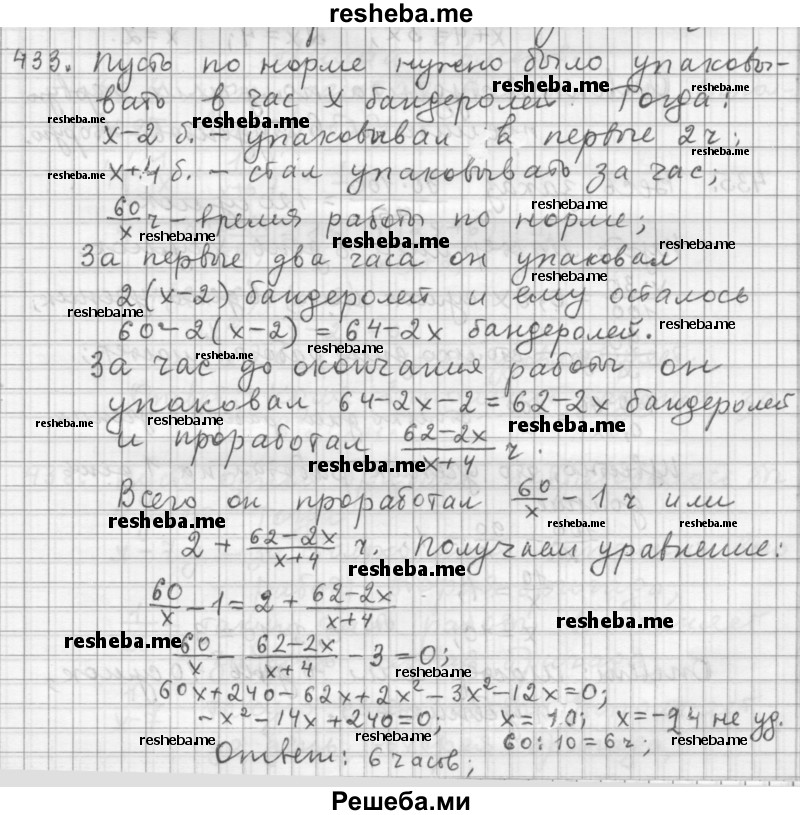 resheba.me
433. Пусть по норме нужно было упаковы-
resheba.me resheba.me
вать в час x бандеролей. Тогда:
resheba.me resheba.me
x-2 б. - упаковывал в первые 2ч;
resheba.me
x+4 б. - стал упаковывать за час;
resheba.me
60/x ч - время работы по норме;
resheba.me resheba.me resheba.me resheba.me
За первые два часа он упаковал
resheba.me
2(x-2) бандеролей и ему осталось
resheba.me resheba.me
60-2(x-2) = 64-2x бандеролей.
resheba.me resheba.me
За час до окончания работы он
resheba.me
упаковал 64-2x-2 = 62-2x бандеролей
resheba.me resheba.me resheba.me
и проработал (62-2x)/(x+4) ч.
resheba.me resheba.me
Всего он проработал 60/x - 1 ч или
resheba.me resheba.me resheba.me
2 + (62-2x)/(x+4) ч. Получаем уравнение:
resheba.me resheba.me
60/x - 1 = 2 + (62-2x)/(x+4)
resheba.me resheba.me
60/x - (62-2x)/(x+4) - 3 = 0;
resheba.me
60x+240-62x+2x²-3x²-12x=0;
-x²-14x+240=0; x=10; x=-24 не уд.
resheba.me resheba.me 60:10=6ч; resheba.me
Ответ: 6 часов;
Решеба.ми